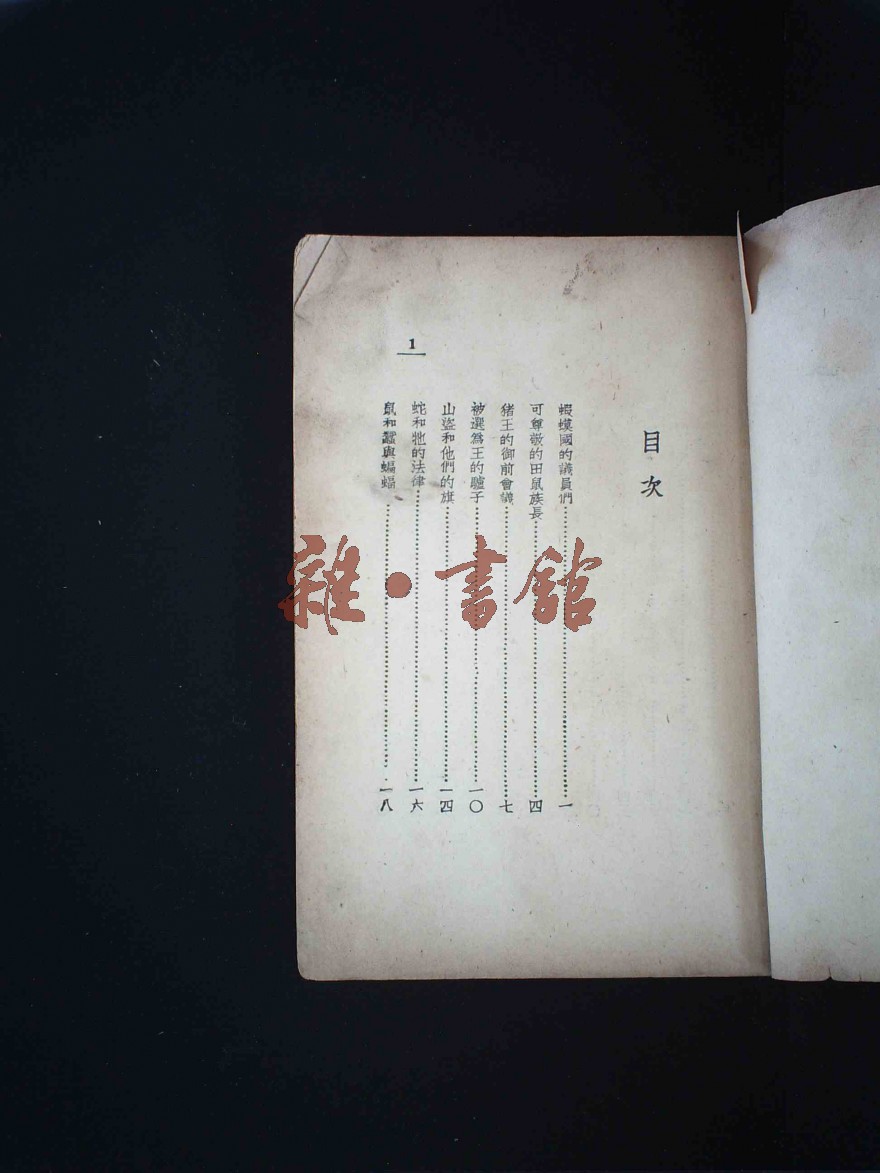 目次
蝦蟆國的議員們…………一
可尊敬的田鼠族長…………四
猪王的御前會議…………七
被選爲王的驢子…………一〇
山盜和他們的旗…………一四
蛇和牠的法律…………一六
鼠和蠶與蝙蝠…………一八
1
雜·書館